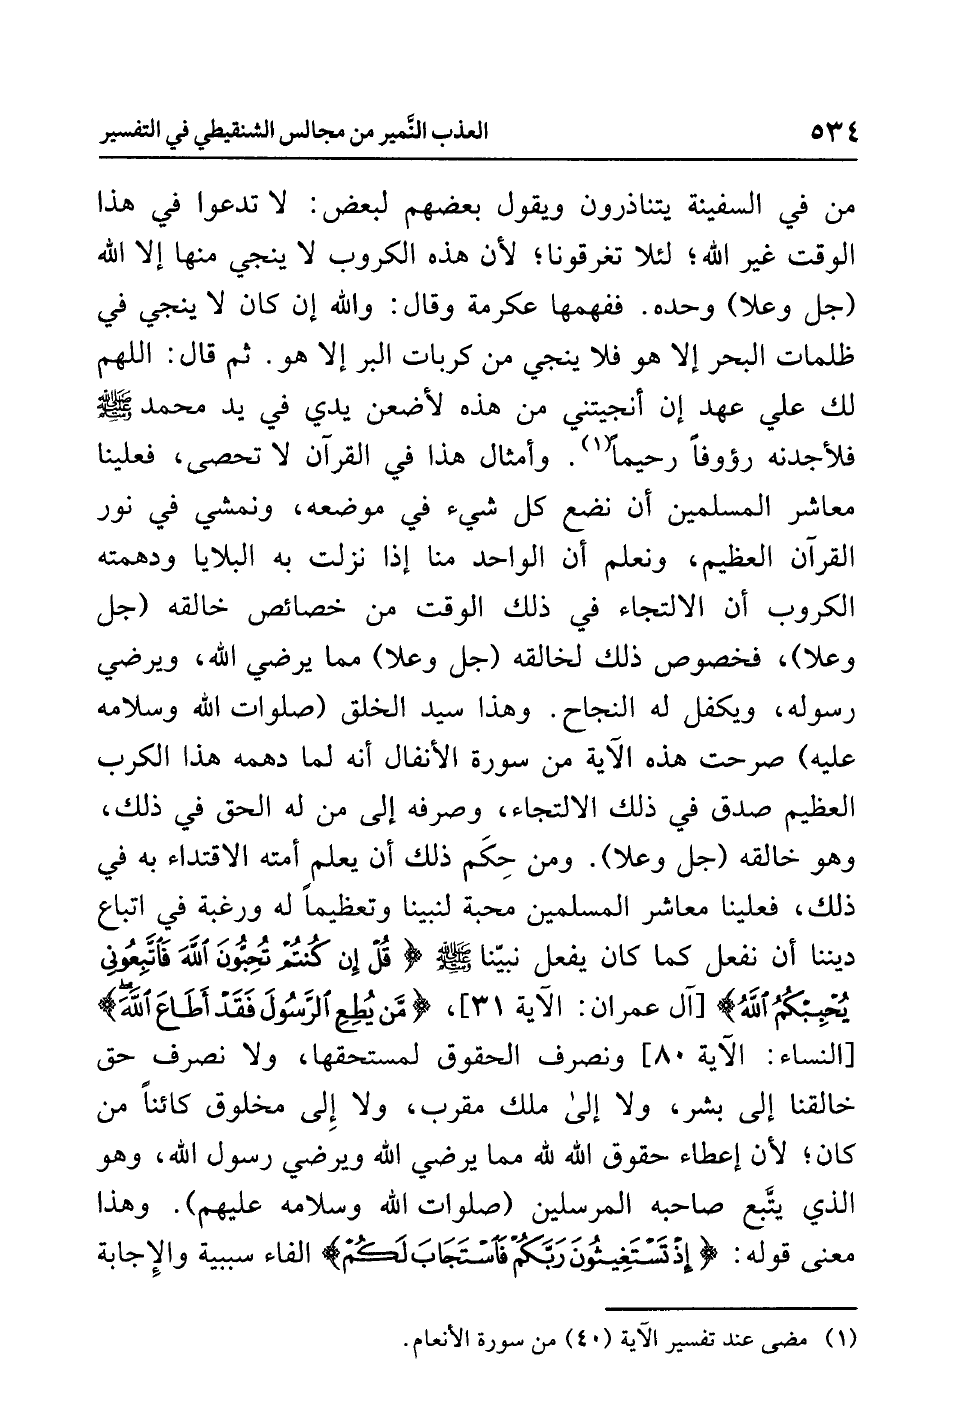 ٥٣٤ العذب النَّمير من مجالس الشنقيطي في التفسير
من في السفينة يتناذرون ويقول بعضهم لبعض: لا تدعوا في هذا
الوقت غير الله؛ لئلا تغرقونا؛ لأن هذه الكروب لا ينجي منها إلا الله
(جل وعلا) وحده. ففهمها عكرمة وقال: والله إن كان لا ينجي في
ظلمات البحر إلا هو فلا ينجي من كربات البر إلا هو. ثم قال: اللهم
لك علي عهد إن أنجيتني من هذه لأضعن يدي في يد محمد ﷺ
فلأجدنه رؤوفاً رحيماً(١). وأمثال هذا في القرآن لا تحصى، فعلينا
معاشر المسلمين أن نضع كل شيء في موضعه، ونمشي في نور
القرآن العظيم، ونعلم أن الواحد منا إذا نزلت به البلايا ودهمته
الكروب أن الالتجاء في ذلك الوقت من خصائص خالقه (جل
وعلا)، فخصوص ذلك لخالقه (جل وعلا) مما يرضي الله، ويرضي
رسوله، ويكفل له النجاح. وهذا سيد الخلق (صلوات الله وسلامه
عليه) صرحت هذه الآية من سورة الأنفال أنه لما دهمه هذا الكرب
العظيم صدق في ذلك الالتجاء، وصرفه إلى من له الحق في ذلك،
وهو خالقه (جل وعلا). ومن حِكَم ذلك أن يعلم أمته الاقتداء به في
ذلك، فعلينا معاشر المسلمين محبة لنبينا وتعظيماً له ورغبة في اتباع
ديننا أن نفعل كما كان يفعل نبيّنا ﷺ ﴿قُلْ إِن كُنتُمْ تُحِبُّونَ ٱللَّهَ فَٱتَّبِعُونِى
يُحْبِبْكُمُ ٱللَّهُ﴾ [آل عمران: الآية ٣١]، ﴿مَّن يُطِعِ ٱلرَّسُولَ فَقَدْ أَطَاعَ ٱللَّهَۖ﴾
[النساء: الآية ٨٠] ونصرف الحقوق لمستحقها، ولا نصرف حق
خالقنا إلى بشر، ولا إلىٰ ملك مقرب، ولا إِلى مخلوق كائناً من
كان؛ لأن إعطاء حقوق الله لله مما يرضي الله ويرضي رسول الله، وهو
الذي يتَّبع صاحبه المرسلين (صلوات الله وسلامه عليهم). وهذا
معنى قوله: ﴿إِذْ تَسْتَغِيثُونَ رَبَّكُمْ فَٱسْتَجَابَ لَكُمْ﴾ الفاء سببية والإِجابة
(١) مضى عند تفسير الآية (٤٠) من سورة الأنعام.